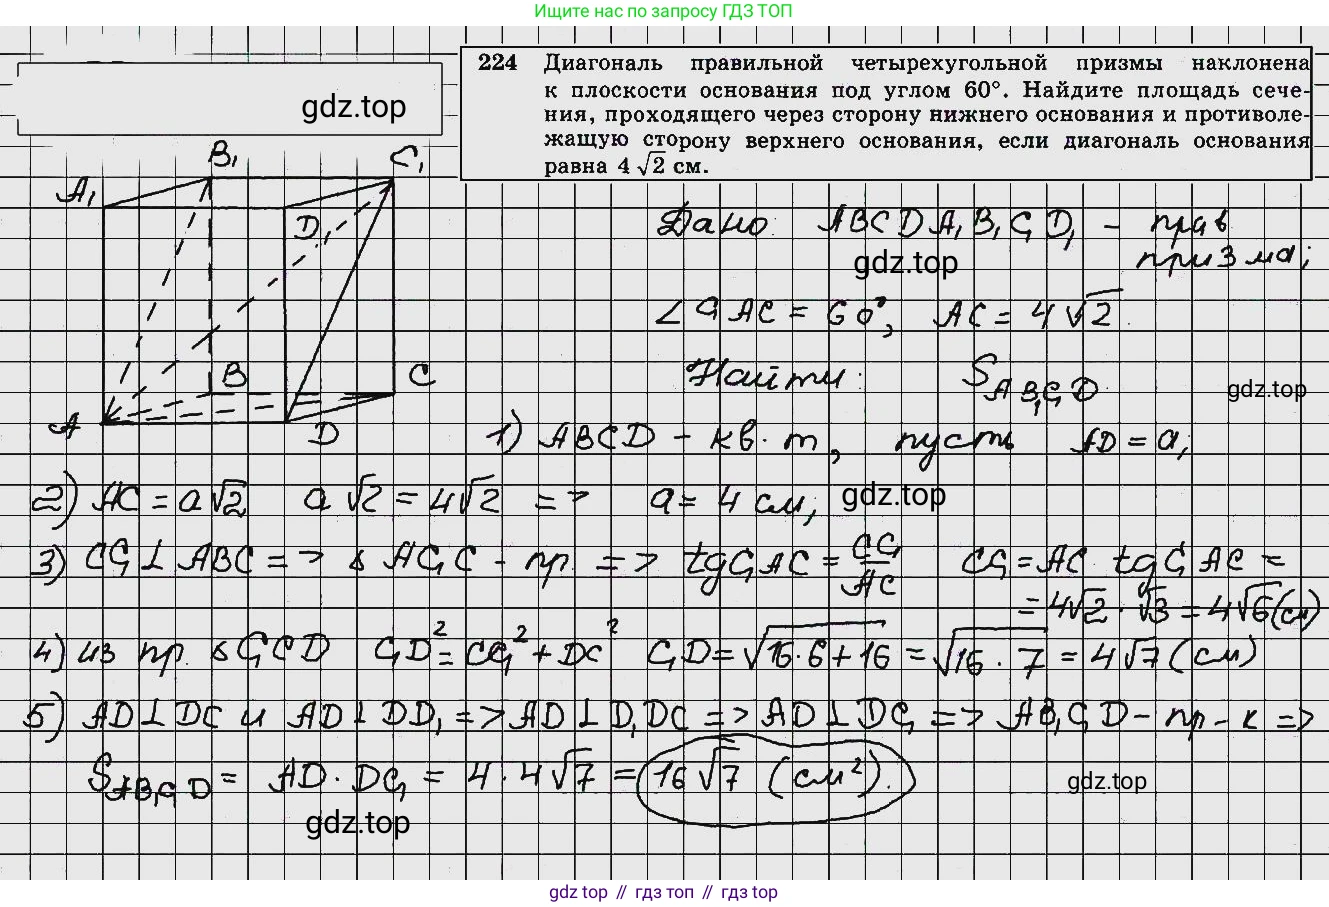 Ищите нас по запросу ГДЗ ТОП
224 Диагональ правильной четырехугольной призмы наклонена
к плоскости основания под углом 60°. Найдите площадь сече-
ния, проходящего через сторону нижнего основания и противоле-
жащую сторону верхнего основания, если диагональ основания
равна 4√2 см.
gdz.top
B₁ C₁
A₁ D₁
B C
A D
Дано: ABCDA₁B₁C₁D₁ – прав
призма;
gdz.top
∠C₁AC = 60°, AC = 4√2
Найти: S AB₁C₁D
gdz.top
1) ABCD – кв.т, пусть AD = a;
2) AC = a√2 a√2 = 4√2 => a = 4 см;
gdz.top
3) CC₁ ⊥ ABC => △ AC₁C - пр. => tg C₁AC = CC₁/AC CC₁ = AC tg C₁AC =
= 4√2 · √3 = 4√6 (см)
4) из пр. △ C₁CD C₁D² = CC₁² + DC² C₁D = √16·6+16 = √16·7 = 4√7 (см)
5) AD ⊥ DC и AD ⊥ DD₁ => AD ⊥ D₁DC => AD ⊥ DC₁ => AB₁C₁D – пр-к =>
S AB₁C₁D = AD · DC₁ = 4 · 4√7 = 16√7 (см²).
gdz.top
gdz.top
gdz top // гдз топ // gdz top